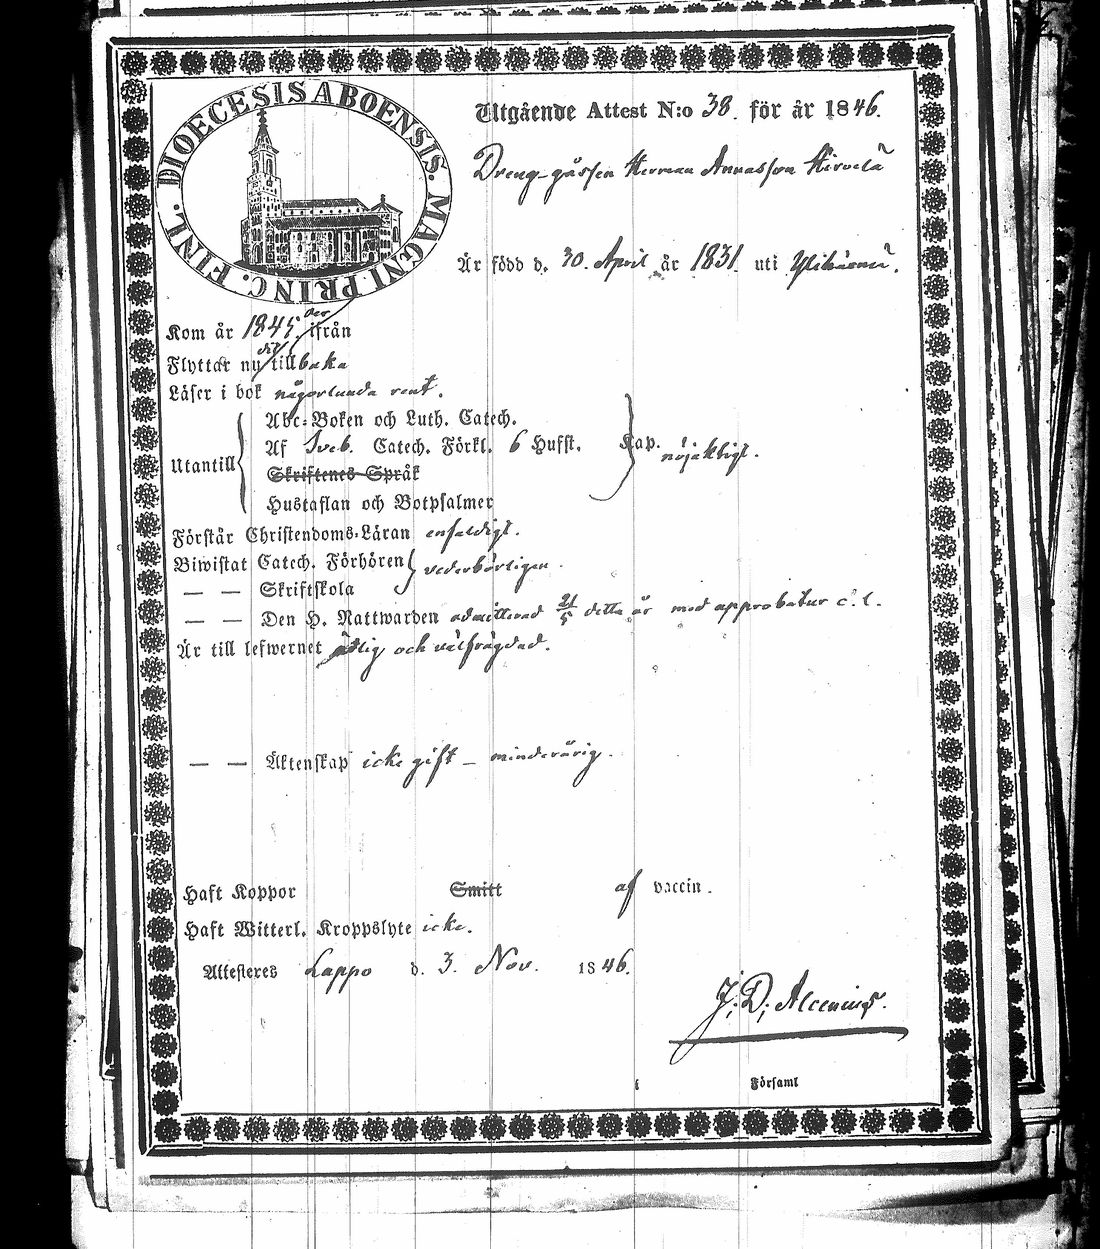 DIOECESIS ABOENSIS. MAGNI PRINC. FINL.
Utgående Attest N:o 38. för år 1846.
Dreng-gåssen Herman Annasson Hirvelä
Är född d. 30. April år 1831 uti Ylihärmä.
Kom år 1845. ifrån
Flyttar nu tillbaka
Läser i bok någorlunda rent.
Utantill
Abc-Boken och Luth. Catech.
Af Sveb. Catech. Förkl. 6 Hufst. Kap. nöjaktigt.
Skriftenes Språk
Hustaflan och Botpsalmer
Förstår Christendoms-Läran enfaldigt.
Biwistat Catech. Förhören vederbörligen.
— — Skriftskola
— — Den H. Nattwarden admitterad 21/5 detta år med approbatur c. l.
Är till lefwernet ärlig och välfrägdad.
— — Äktenskap icke gift – minderårig.
Haft Koppor Smitt af vaccin.
Haft Witterl. Kroppslyte icke.
Attesteres Lappo d. 3. Nov. 1846.
J. D. Alcenius.
Församl